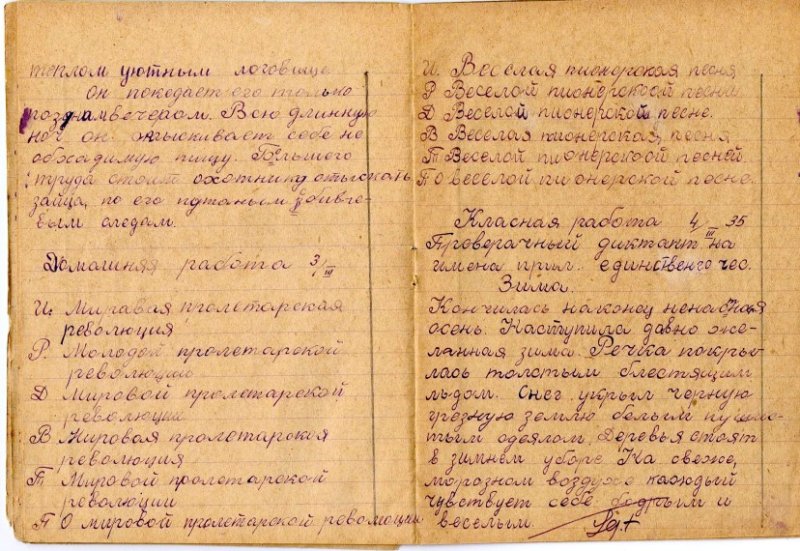 теплом уютным логовище
он покедает его только
позднамвечерам. Всю длинную
ноч он отыскивает себе не
обхадимую пищу. Большого
труда стоит охотнику отыскать
зайца, по его
вым следам.
Домашняя работа 3/III
И. Мировая пролетарская
революция
Р. Молодой пролетарской
революции
Д Мировой пролетарской
революции
В Мировая пролетарская
революция
Т Мировой пролетарской
революции
П О мировой пролетарской революции
И. Веселая пионерская песня
Р Веселой пионерской песни
Д Веселой пионерской песне.
В Веселая пионерская песня
Т Веселой пионерской песней.
П О веселой пионерской песне.
Класная работа 4/III 35
Проверачный диктант на
имена прил. единственго чес.
Зима.
Кончилась наконец ненасная
осень. Наступила давно же-
ланная зима. Речка покры-
лась толстым блестящим
льдом. Снег укрыл черную
грезную землю белым пушис-
тым одеялом. Деревья стоят
в зимнем уборе. На свеже,
морозном воздухе каждый
чувствует себе бодрым и
веселым